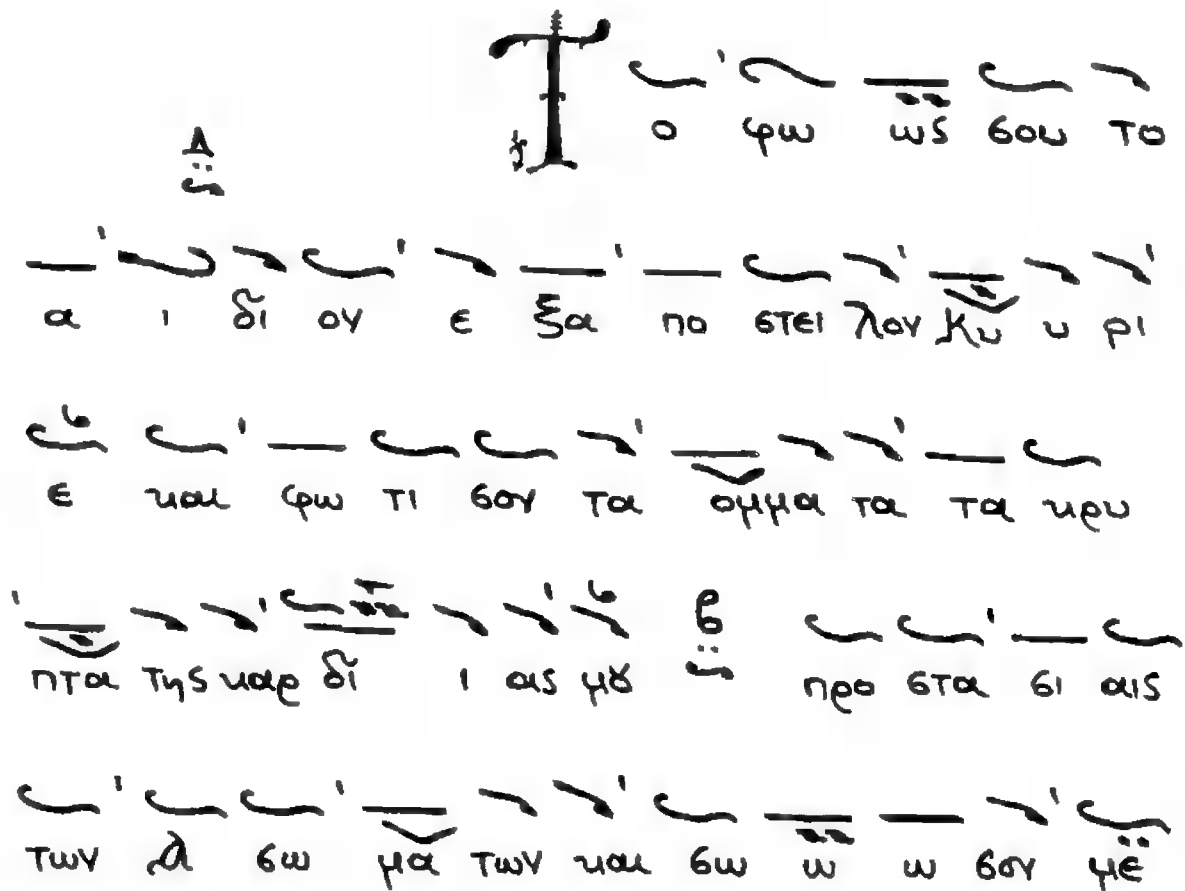 Δ Το φω ως σου το
α ι δι ον ε ξα πο στει λον Κυ υ ρι
ε και φω τι σον τα ομμα τα τα κρυ
πτα της καρ δι ι ας μȣ β προ στα σι αις
των Α σω μα των και σω ω ω σον με